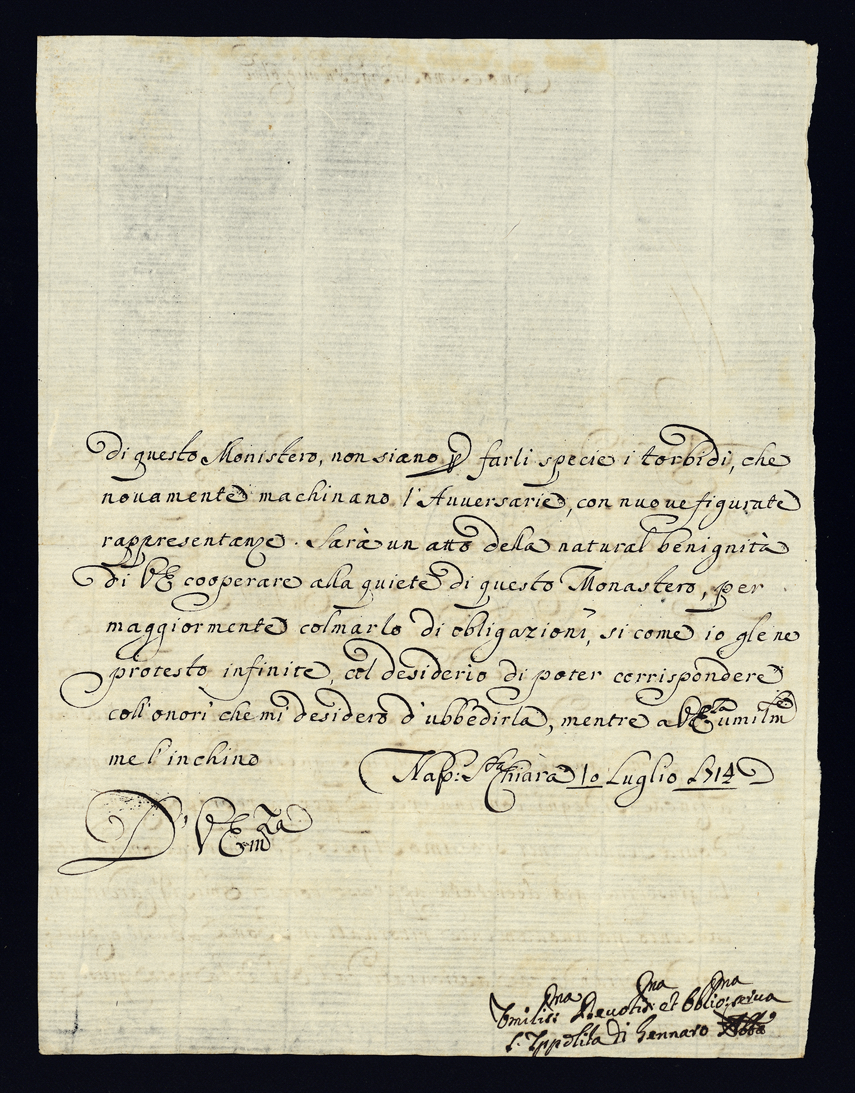 di questo Monistero, non siano p farli specie i torbidi, che
novamente machinano l'Avversarie, con nuove figurate
rappresentanze. Sarà un atto della natural benignità
di VE cooperare alla quiete di questo Monastero, per
maggiormente colmarlo di obligazioni, si come io gle ne
protesto infinite, col desiderio di poter corrispondere
coll'onori che mi desidero d'ubbedirla, mentre a VEza umilme
me l'inchino
Nap: Sta Chiara 10 Luglio 1714
D' VEmza
Umilisma Devotisma et Obligma serva
S. Ippolita di Gennaro Abba